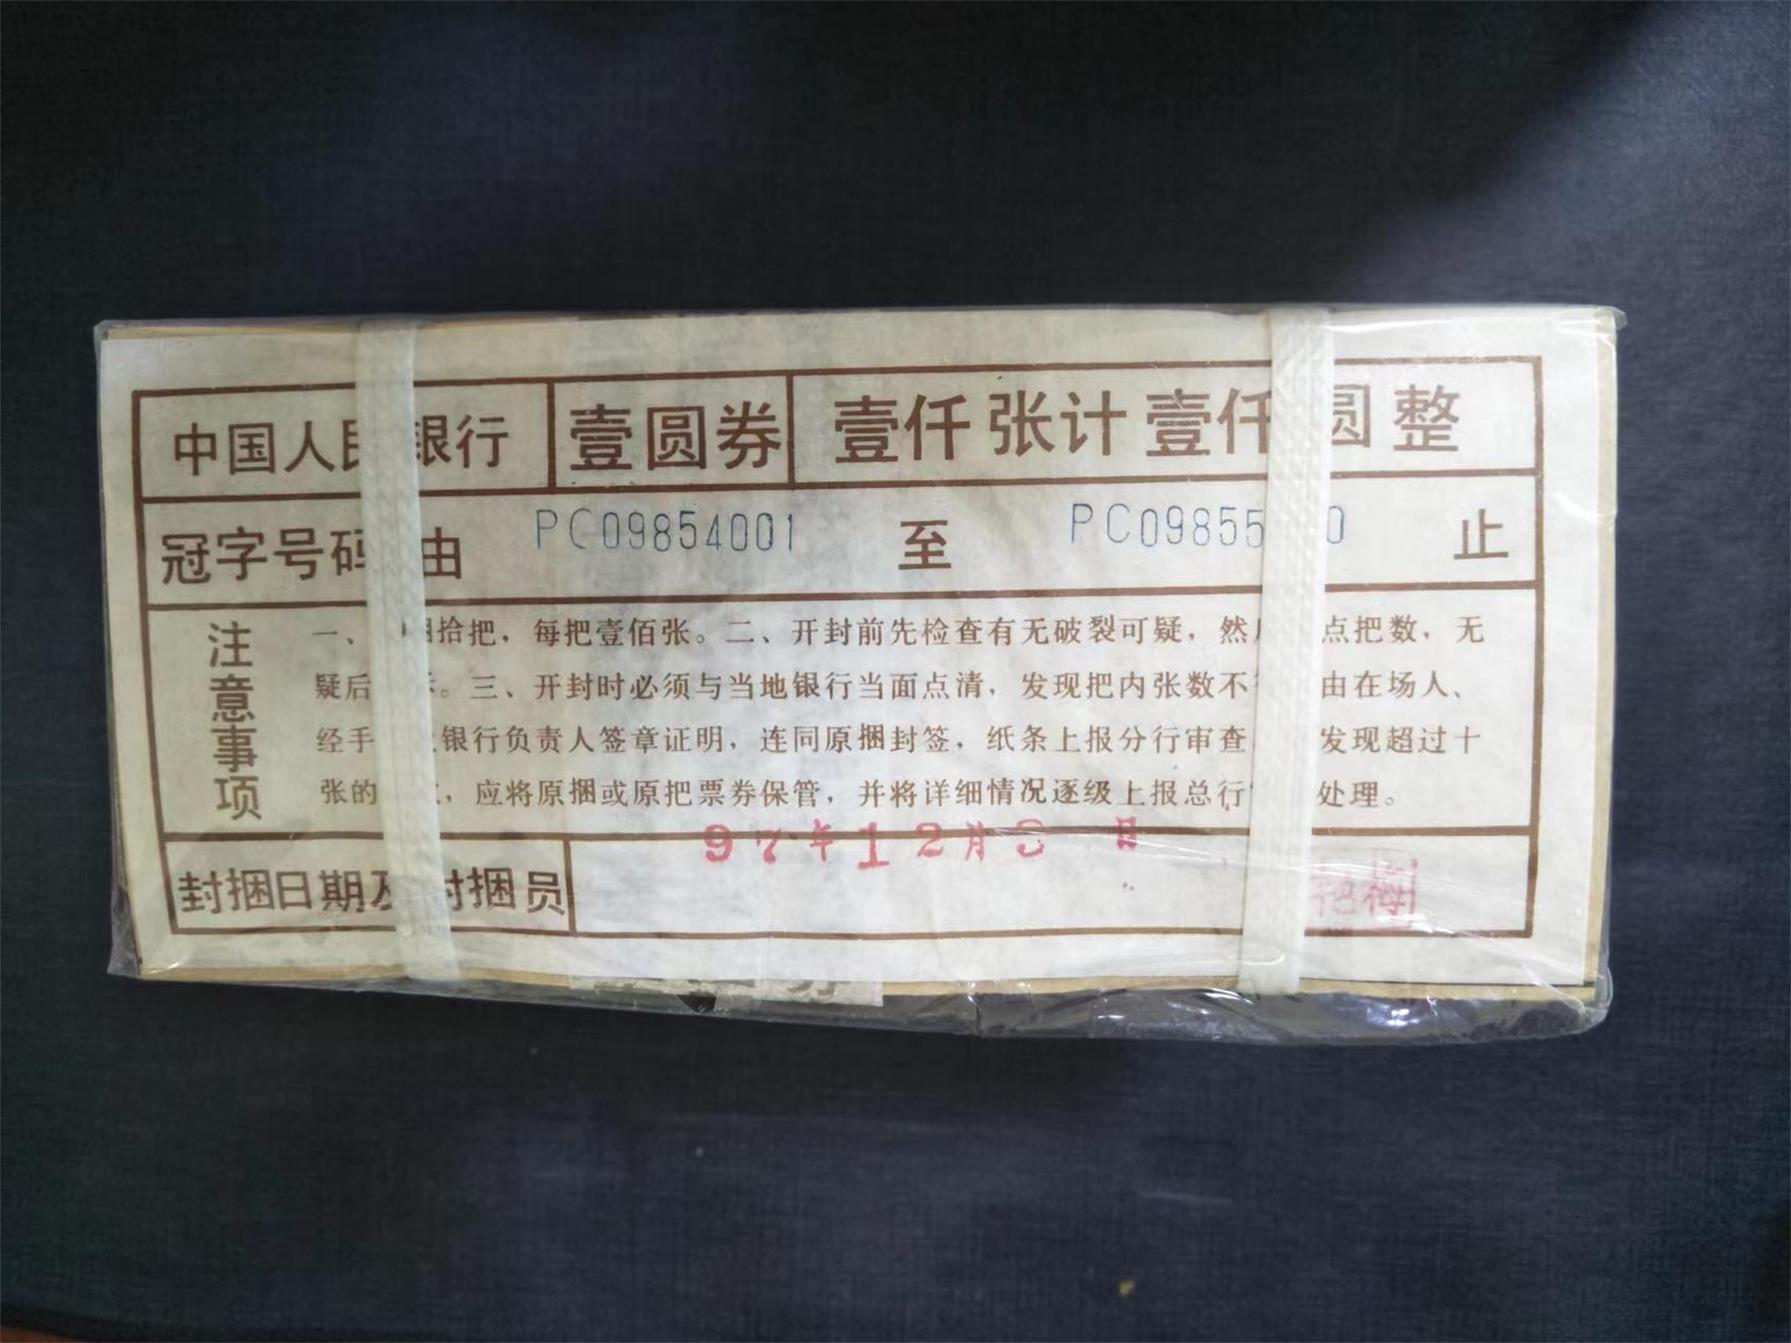 中国人民银行 壹圆券 壹仟张计壹仟圆整
冠字号码由 PC09854001 至 PC09855 0 止
注意事项
一、 捆拾把，每把壹佰张。二、开封前先检查有无破裂可疑，然 点把数，无
疑后 。三、开封时必须与当地银行当面点清，发现把内张数不 由在场人、
经手 银行负责人签章证明，连同原捆封签，纸条上报分行审查 发现超过十
张的 ，应将原捆或原把票券保管，并将详细情况逐级上报总行 处理。
97年12月8日
封捆日期及封捆员